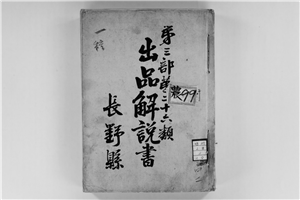 第三部第二十六類
出品解説書
長野縣
農99